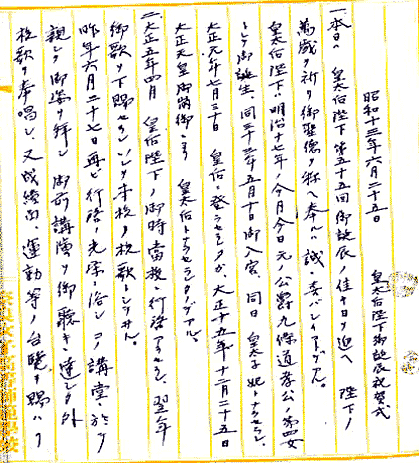 昭和十三年六月二十五日　皇太后陛下御誕辰祝賀式
一、本日ハ　皇太后陛下第五十五回御誕辰ノ佳キ日ヲ迎ヘ　陛下ノ
萬歳ヲ祈リ御聖徳ヲ称ヘ奉ルハ誠ニ喜バシイコトデアル。
皇太后陛下ハ明治十七年ノ今月今日元ノ公爵九條道孝公ノ第四女
トシテ御誕生、同三十三年五月十日御入宮、同日　皇太子妃トナラセラレ、
大正元年七月三十日　皇后ニ登ラセラレタガ、大正十五年十二月二十五日
大正天皇御崩御ニヨリ　皇太后トナラセラレタノデアル。
二、大正五年四月　皇后陛下ノ御時當校ニ行啓アラセラレ、翌年
御歌ヲ下賜セラレ ソレヲ本校ノ校歌トシテヰル。
昨年六月二十七日再ビ行啓ノ光栄ニ浴シ コノ講堂ニ於テ
親シク御姿ヲ拝シ 御前講演ヲ御聴キニ達シタ外
校歌ヲ奉唱シ、又成績品、運動等ノ台覧ヲ賜ハリ